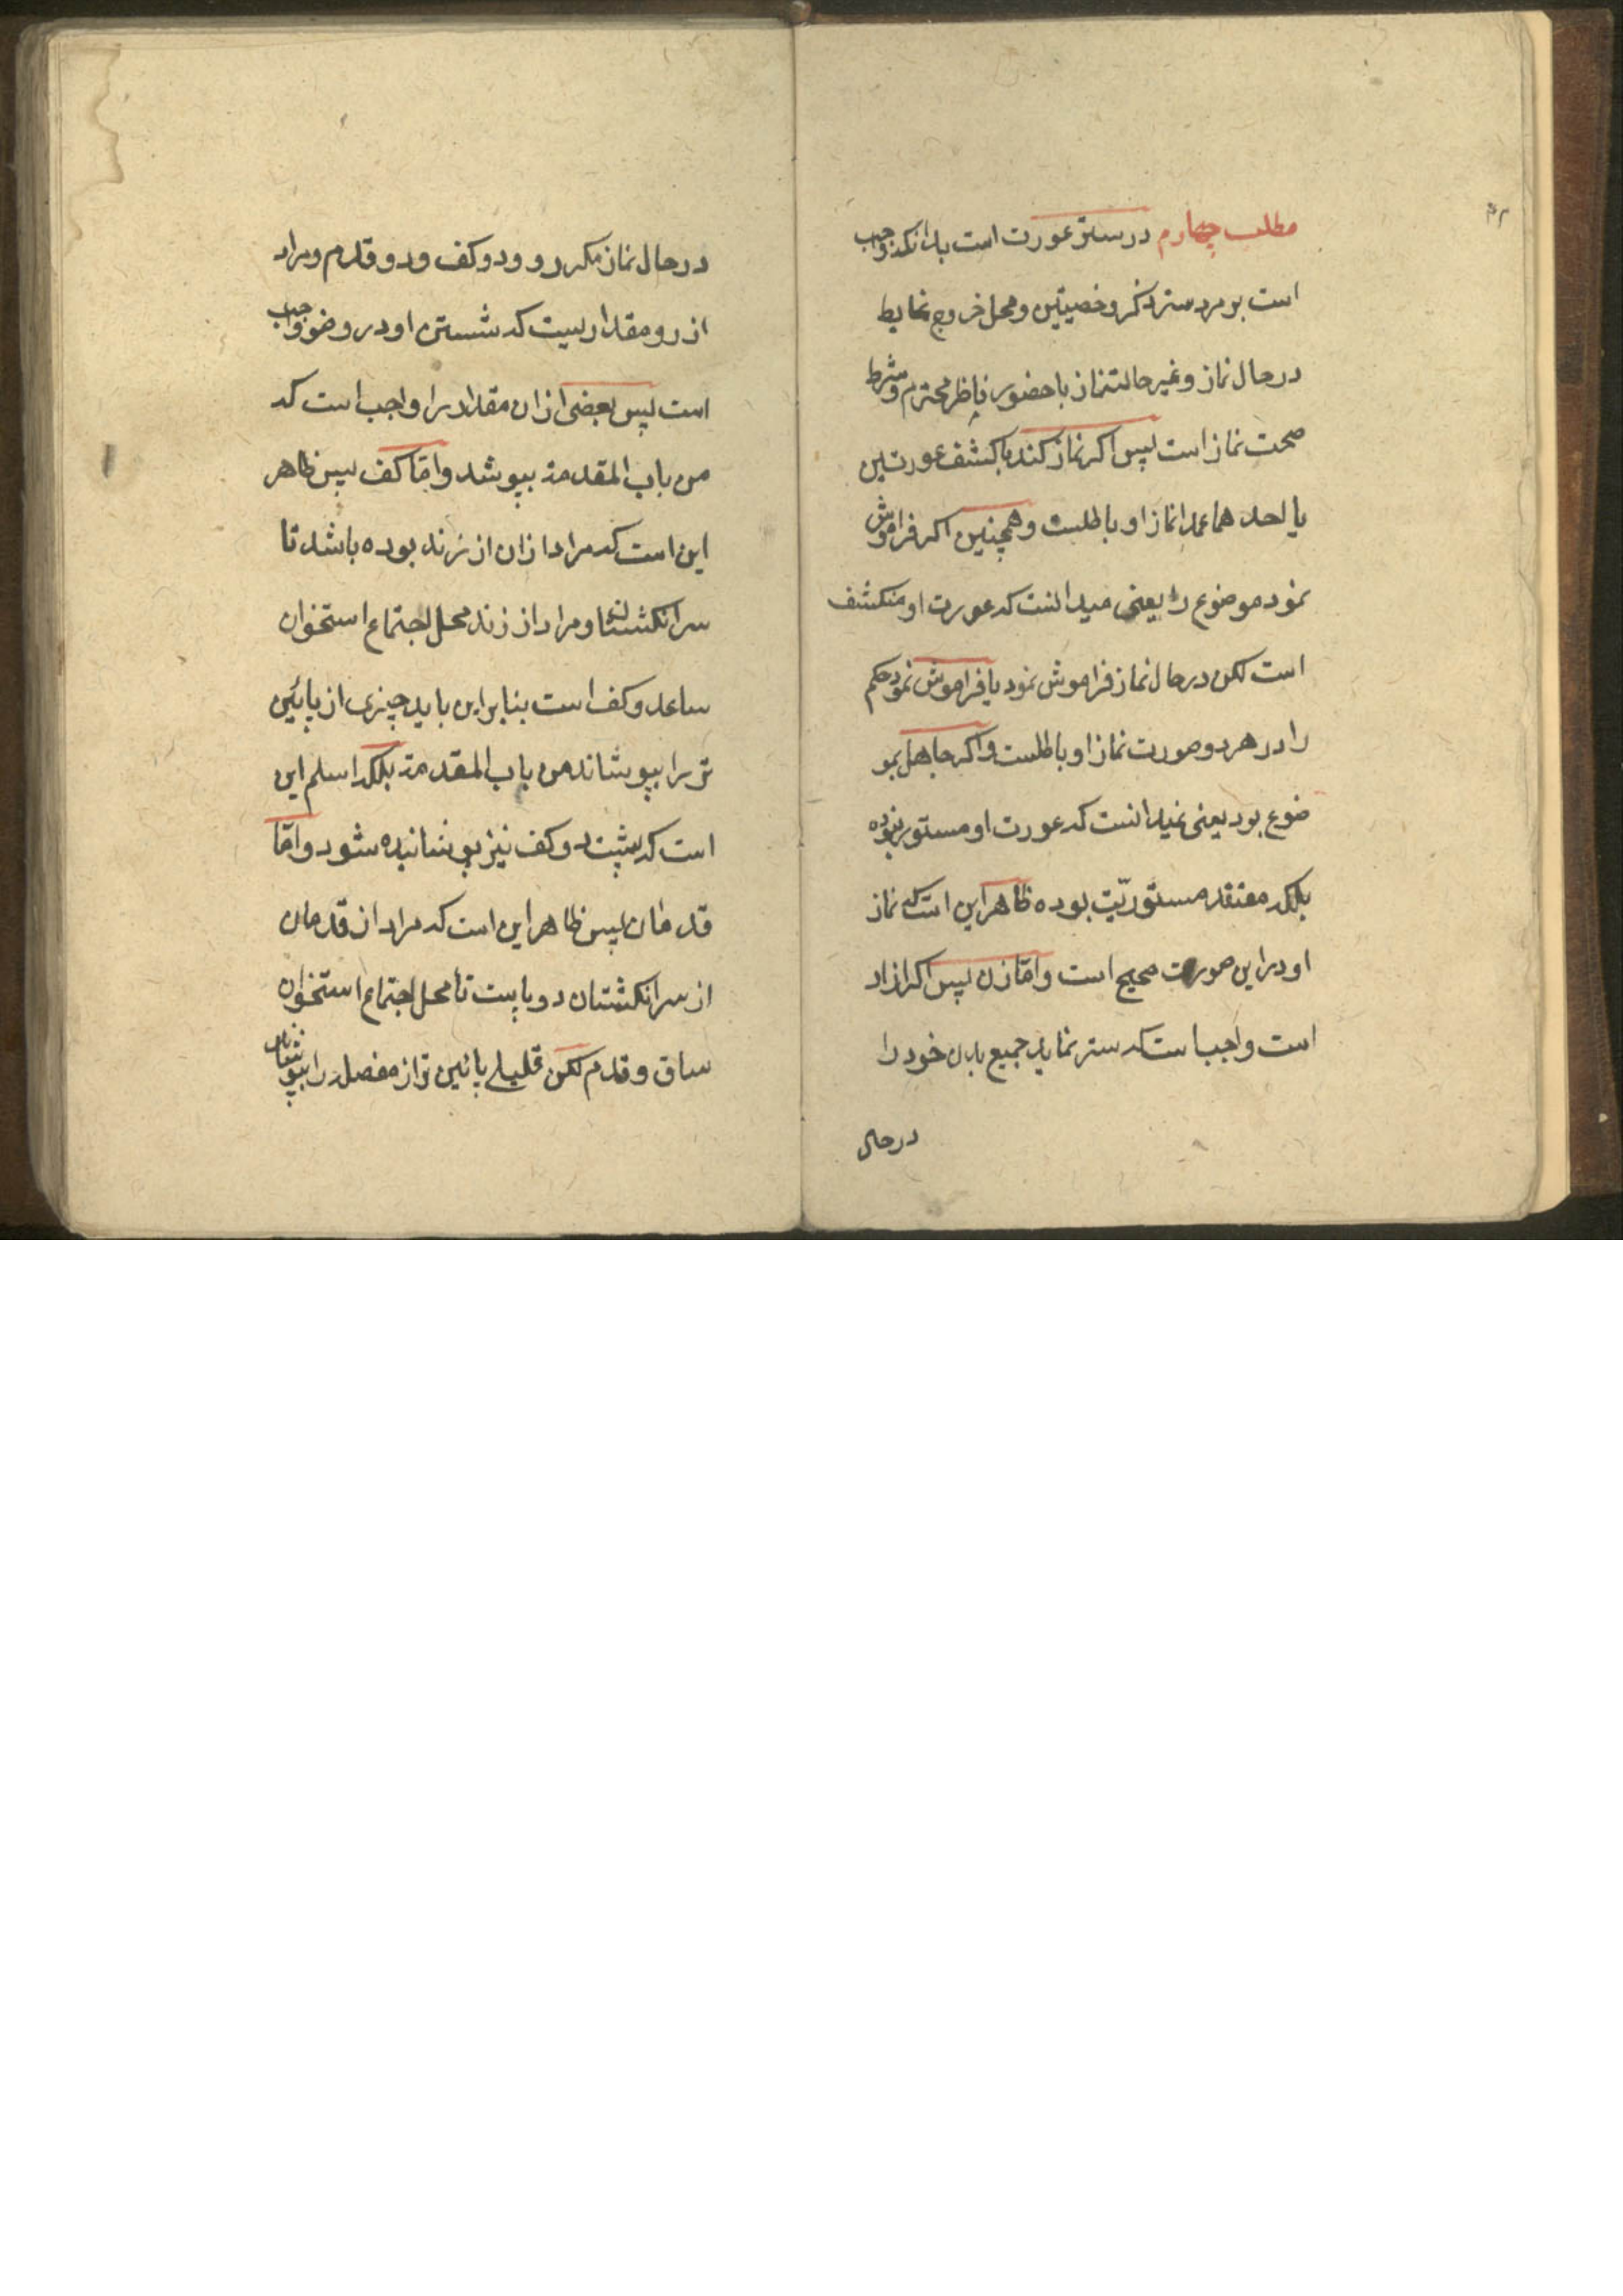 ۳۲
مطلب چهارم در ستر عورت است بدانکه واجب
است بر مرد ستر ذکر و خصیتین و محل خروج غایط
در حال نماز و غیر حالت نماز با حضور ناظر محترم و شرط
صحت نماز است پس اکر نماز کند با کشف عورتین
یا احدهما عمدا نماز او باطلست و همچنین اکر فراموش
نمود موضوع را یعنی میدانست که عورت او منکشف
است لکن در حال نماز فراموش نمود یا فراموش نمود حکم
را در هر دو صورت نماز او باطلست و اکر جاهل بمو
ضوع بود یعنی نمیدانست که عورت او مستور نبوده
بلکه معتقد مستوریّت بوده ظاهر این است که نماز
او در این صورت صحیح است و امّا زن پس اکر ازاد
است واجب است که ستر نماید جمیع بدن خود را
در حال
در حال نماز مکر رو و دو کف و دو قدم و مراد
از رو مقداریست که شستن او در وضو واجب
است پس بعضی از ان مقدار را واجب است که
من باب المقدمة بپوشد و امّا کف پس ظاهر
این است که مراد از ان از زند بوده باشد تا
سر انکشتان و مراد از زند محل اجتماع استخوان
ساعد و کف است بنابر این باید چیزی از پائین
تر را بپوشاند من باب المقدمة بلکه اسلم این
است که پشت دو کف نیز پوشانیده شود و امّا
قدمان پس ظاهر این است که مراد از قدمان
از سر انکشتان دو پا است تا محل اجتماع استخوان
ساق و قدم لکن قلیلی پائین تر از مفصل را بپوشاند